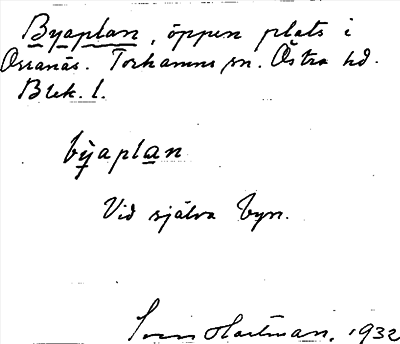 Byaplan, öppen plats i
Orranäs. Torhamns sn. Östra hd.
Blek. l.
bỳaplan
Vid själva byn.
Sven Hartman. 1932